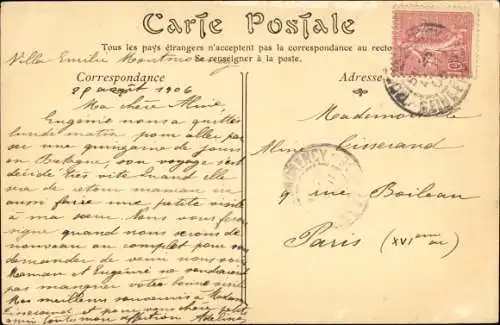 Carte Postale
Tous les pays étrangers n'acceptent pas la correspondance au recto
Se renseigner à la poste.
Villa Emilie Montmorency
Correspondance
Adresse
29 août 1906
Ma chère Aline,
Eugénie nous a quittés
lundi matin pour aller
une quinzaine de jours
en Bretagne, son voyage s'est
décidé très vite Quand elle
sera de retour maman ira
aussi faire une petite visite
à ma sœur. Nous vous ferons
signe quand nous serons de
nouveau au complet pour vous
demander de venir nous voir
Maman et Eugénie se
pas manquer votre bonne
Mes meilleurs souvenirs à Madame
Tisserand et pour vous chère petite
amie toute mon affection Adeline
Mademoiselle
Aline Tisserand
9 rue Boileau
Paris (XVIème arr)